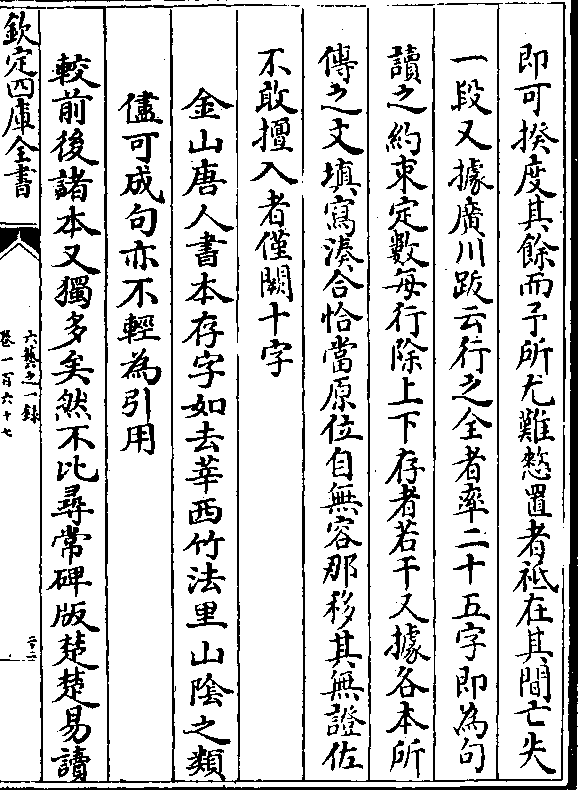 即可揆度其餘而予所尤難憖置者祗在其間亡失
一段又據廣川跋云行之全者率二十五字即為句
讀之約束定數每行除上下存者若干又據各本所
傳之文填寫湊合恰當原位自無容那移其無證佐
不敢擅入者僅闕十字
金山唐人書本存字如去莘西竹法里山陰之類
儘可成句亦不輕為引用
較前後諸本又獨多矣然不比尋常碑版楚楚易讀
欽定四庫全書
六藝之一錄
卷一百六十七
二十二